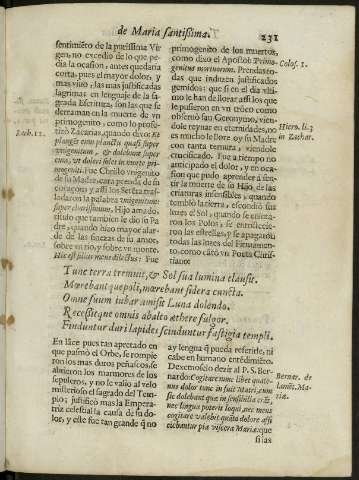 de Maria santissima.
231
sentimiẽto de la purissima Vir
gen, no excedio de lo que pe-
dia la ocasion, antes quedaria
corta, pues el mayor dolor, y
mas vivo, las mas justificadas
lagrimas en lenguaje de la sa-
grada Escritura, son las que se
derraman en la muerte de vn
primogenito, como lo profe-
tizò Zacarias, quando dixo: Et
plangẽt eum planctu quasi super
vnigenitum, & dolebunt super
eum, vt doleri solet in morte pri-
mogeniti. Fue Christo vnigenito
de su Madre, cara prenda de su
coraçon, y assi los Setẽta tras-
ladaron la palabra vnigenitum:
super charissimum. Hijo amado,
titulo que tambien le dio su Pa
dre, quando hizo mayor alar-
de de las finezas de su amor,
sobre vn rio, y sobre vn monte.
Hic est filius meus dilectus. Fue
Zach. 12.
primogenito de los muertos,
como dixo el Apostol: Primo-
genitus mortuorum. Prendas to-
das que induzen justificados
gemidos: que si en el dia vlti-
mo le han de llorar assi los que
le pusieron en vn tronco como
observò san Geronymo, vien-
dole reynar en eternidades, no
es mucho le llore oy su Madre
con tanta ternura, viendole
crucificado. Fue a tiempo no
anticipado el dolor, y en ocasion
que pudo aprender à sen-
tir la muerte de su Hijo, de las
criaturas insensibles, quando
temblò la tierra, escondiò sus
luzes el Sol, quando se enluta-
ron los Polos, se entristecie-
ron las estrellas, y se apagaron
todas las luzes del Firmamen-
to, como cãtò vn Poeta Chris-
tiano:
Colos. 1.
Hiero. li. 3
in Zachar.
Tunc terra tremuit, & Sol sua lumina clausit.
Mœrebant que poli, mœrebant sidera cuncta.
Omne suum iubar amisit Luna dolendo.
Recessitque omnis ab alto æthere fulgor.
Finduntur duri lapides scinduntur fastigia templi.
En lãce pues tan apretado en
que pasmò el Orbe, se rompie-
ron los mas duros peñascos, se
abrieron los marmores de los
sepulcros, y no le valio al velo
misterioso el sagrado del Tem-
plo; justificò mas la Empera-
triz celestial la causa de su do-
lor, y este fue tan grande q̃ no
ay lengua q̃ pueda referirle, ni
cabe en humano entẽdimiẽto.
Dexemoselo dezir al P. S. Ber-
nardo: Cogitare nunc libet quate-
nus dolor tunc in fuit Matri, cum
sic dolebant quæ insensibilia erãt,
nec lingua poterit loqui, nec mens
cogitare valebit quãto dolore affi
ciebantur pia viscera Mariæ. que
Berner. de
lamẽt. Ma-
riæ.
si las